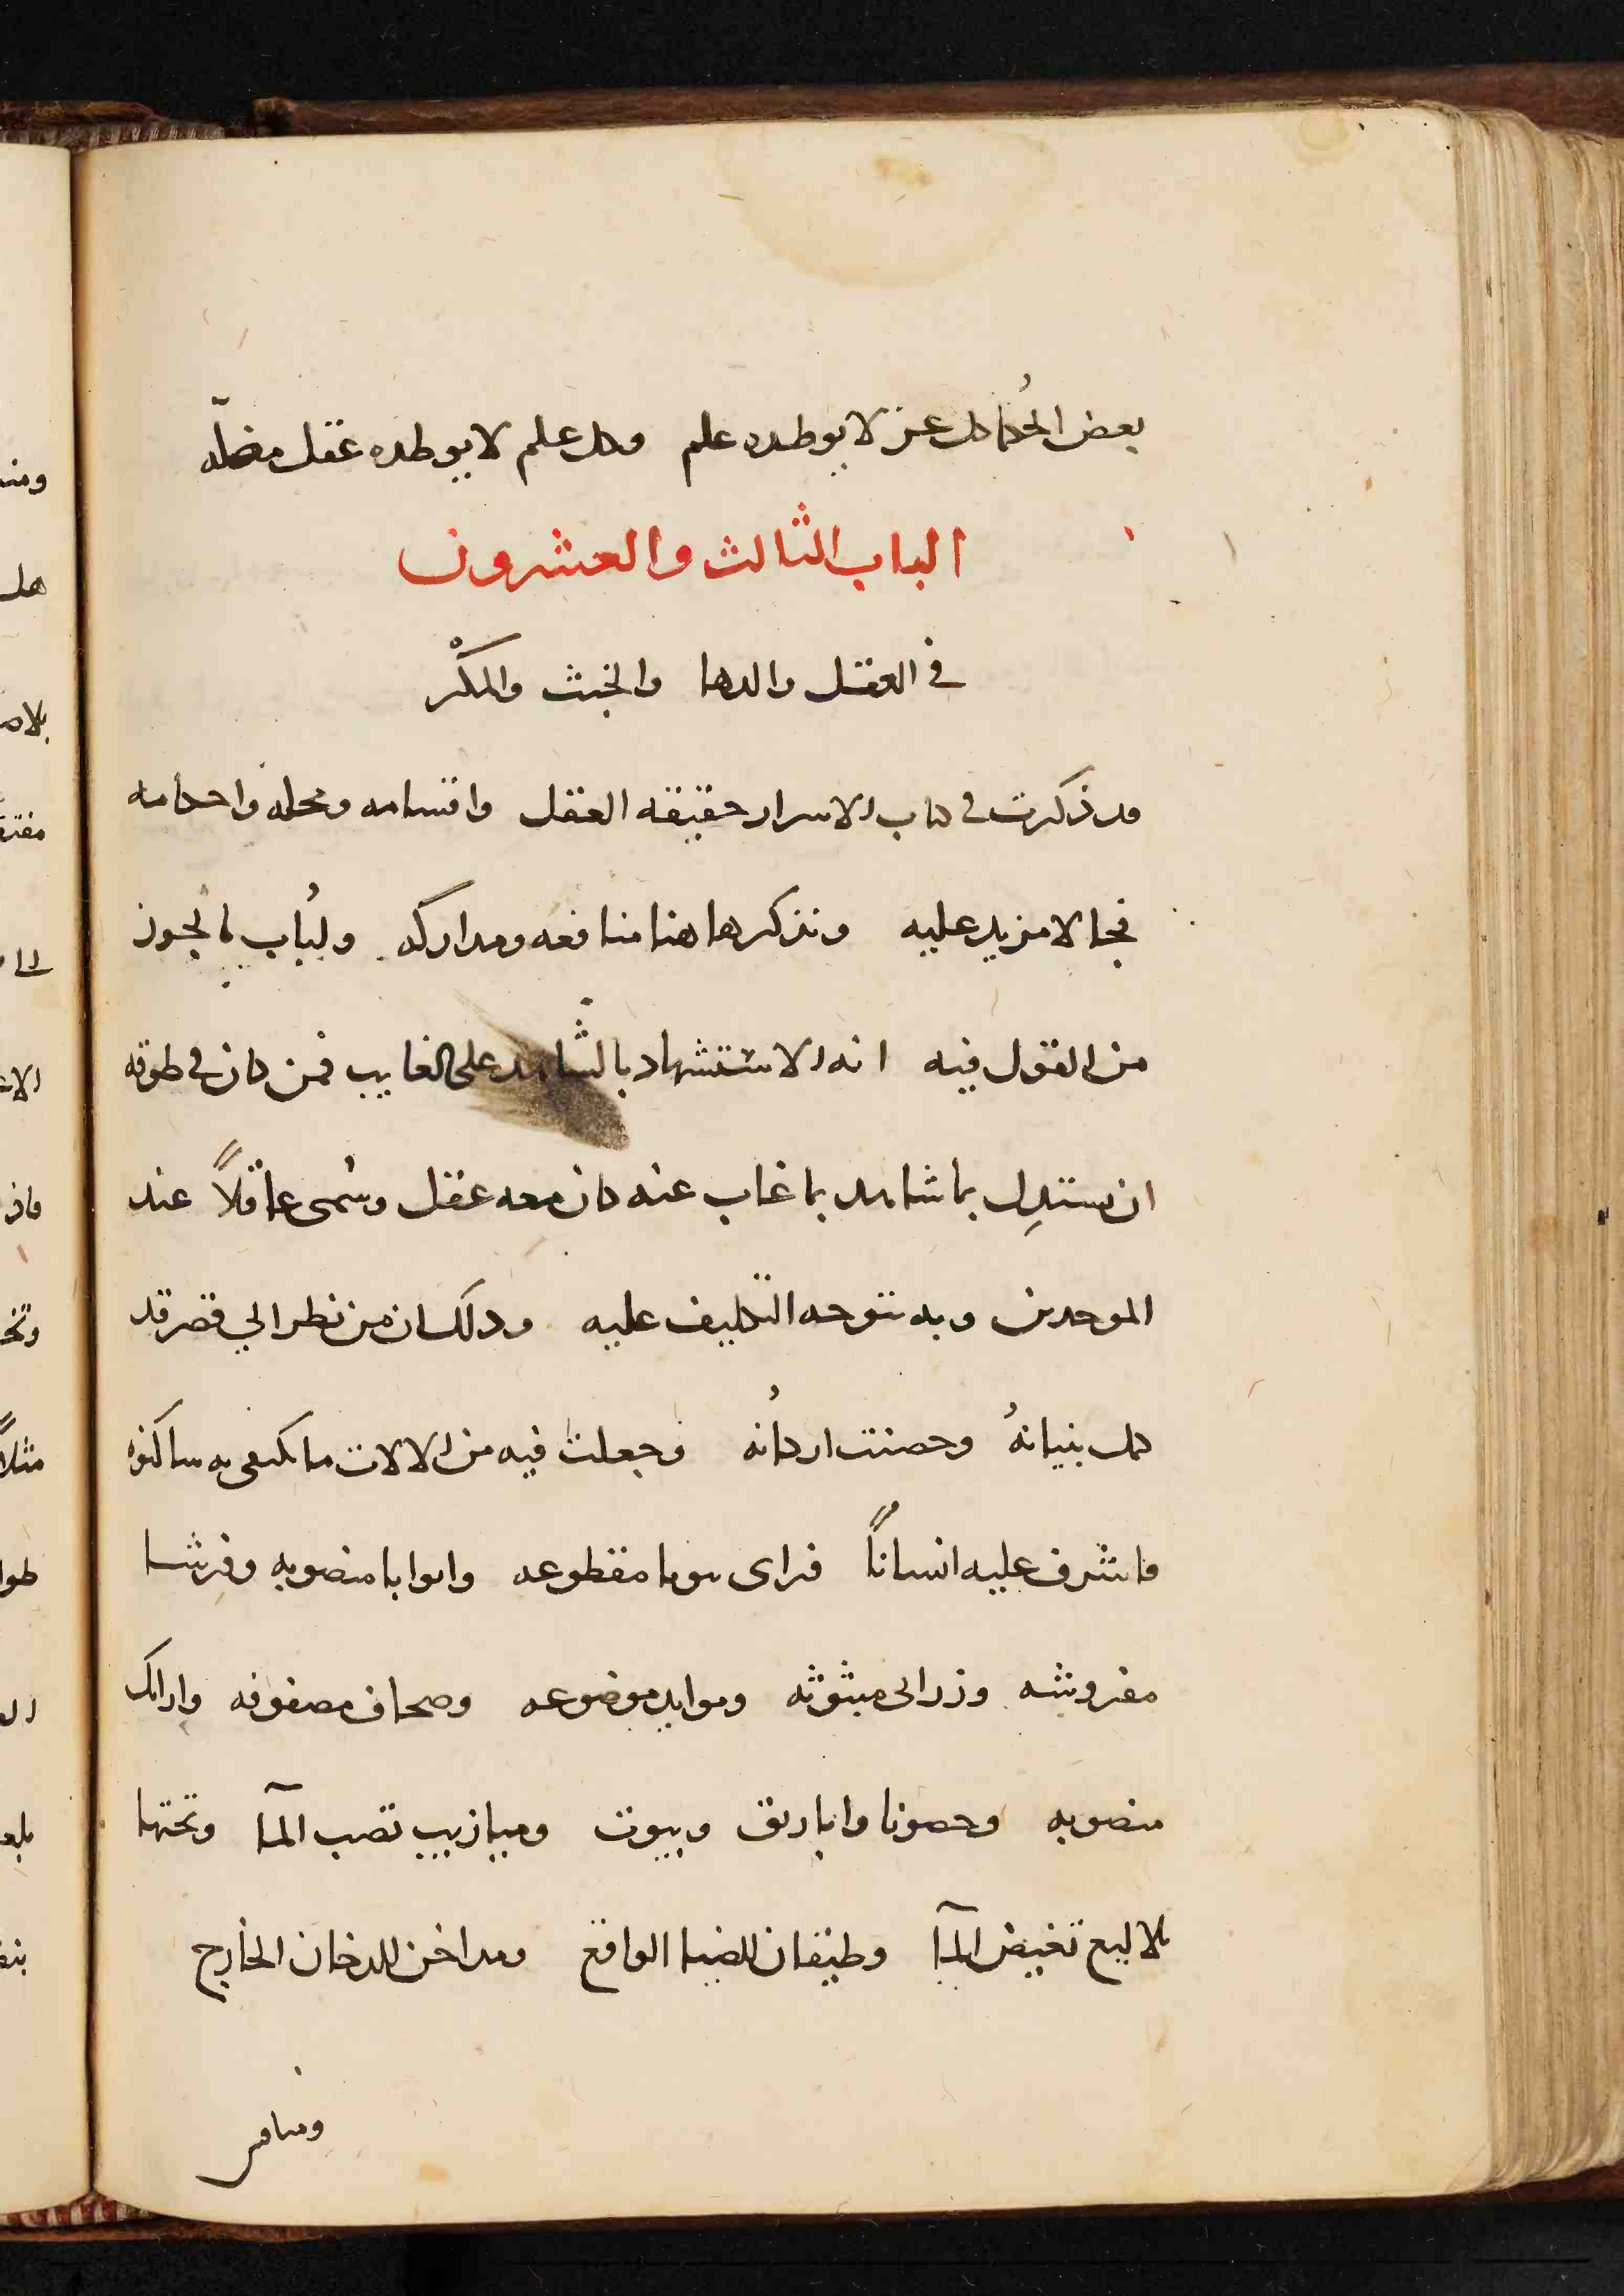 بعض الحُكما كل عز لا يوطده علم وكل علم لا يوطده عقل مضلّه
الباب الثالث والعشرون
في العقل والدها والخبث والمكْر
قد ذكرت في كتاب الاسرار حقيقه العقل واقسامه ومحله واحكامه
فجا لا مزيد عليه ونذكر هاهنا منافعه ومداركه ولُباب ما يجوز
من القول فيه انه الاستشهاد بالشاهد على الغايب فمن كان في طوقه
ان يستدِل بما شاهد بما غاب عنه كان معه عقل وسُمى عاقلاً عند
الموحدين وبه يتوجه التكليف عليه وذلك ان من نظر الي قصر قد
كمل بنيانهُ وحصنت اركانُه وجعلت فيه من الالات ما يكتفي به ساكنوه
فاشرف عليه انساناً فراى بيوتا مقطوعه وابوابا منصوبه وفرشا
مفروشه وزرابى مبثوثه وموايد موضوعه وصحاف مصفوفه وارايك
منصوبه وحصونا واباريق وبيوت وميازيب تصب المآ وتحتها
بلاليع تغيض المآ وطيقان للضيا الواقع ومداخن للدخان الخارج